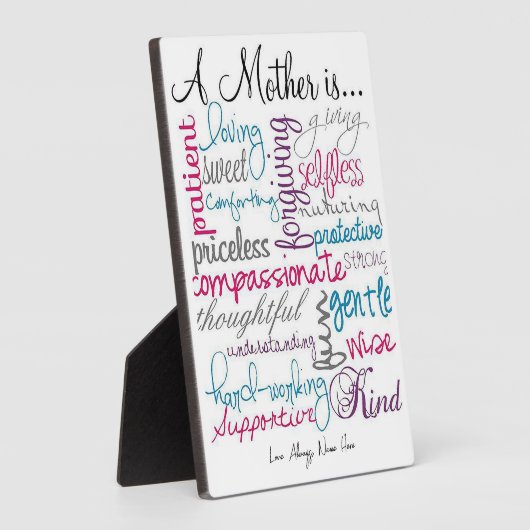 A Mother is...
patient
loving
forgiving
giving
sweet
selfless
comforting
nuturing
priceless
protective
compassionate
strong
thoughtful
fun
gentle
understanding
wise
hard-working
Kind
Supportive
Love Always, Name Here